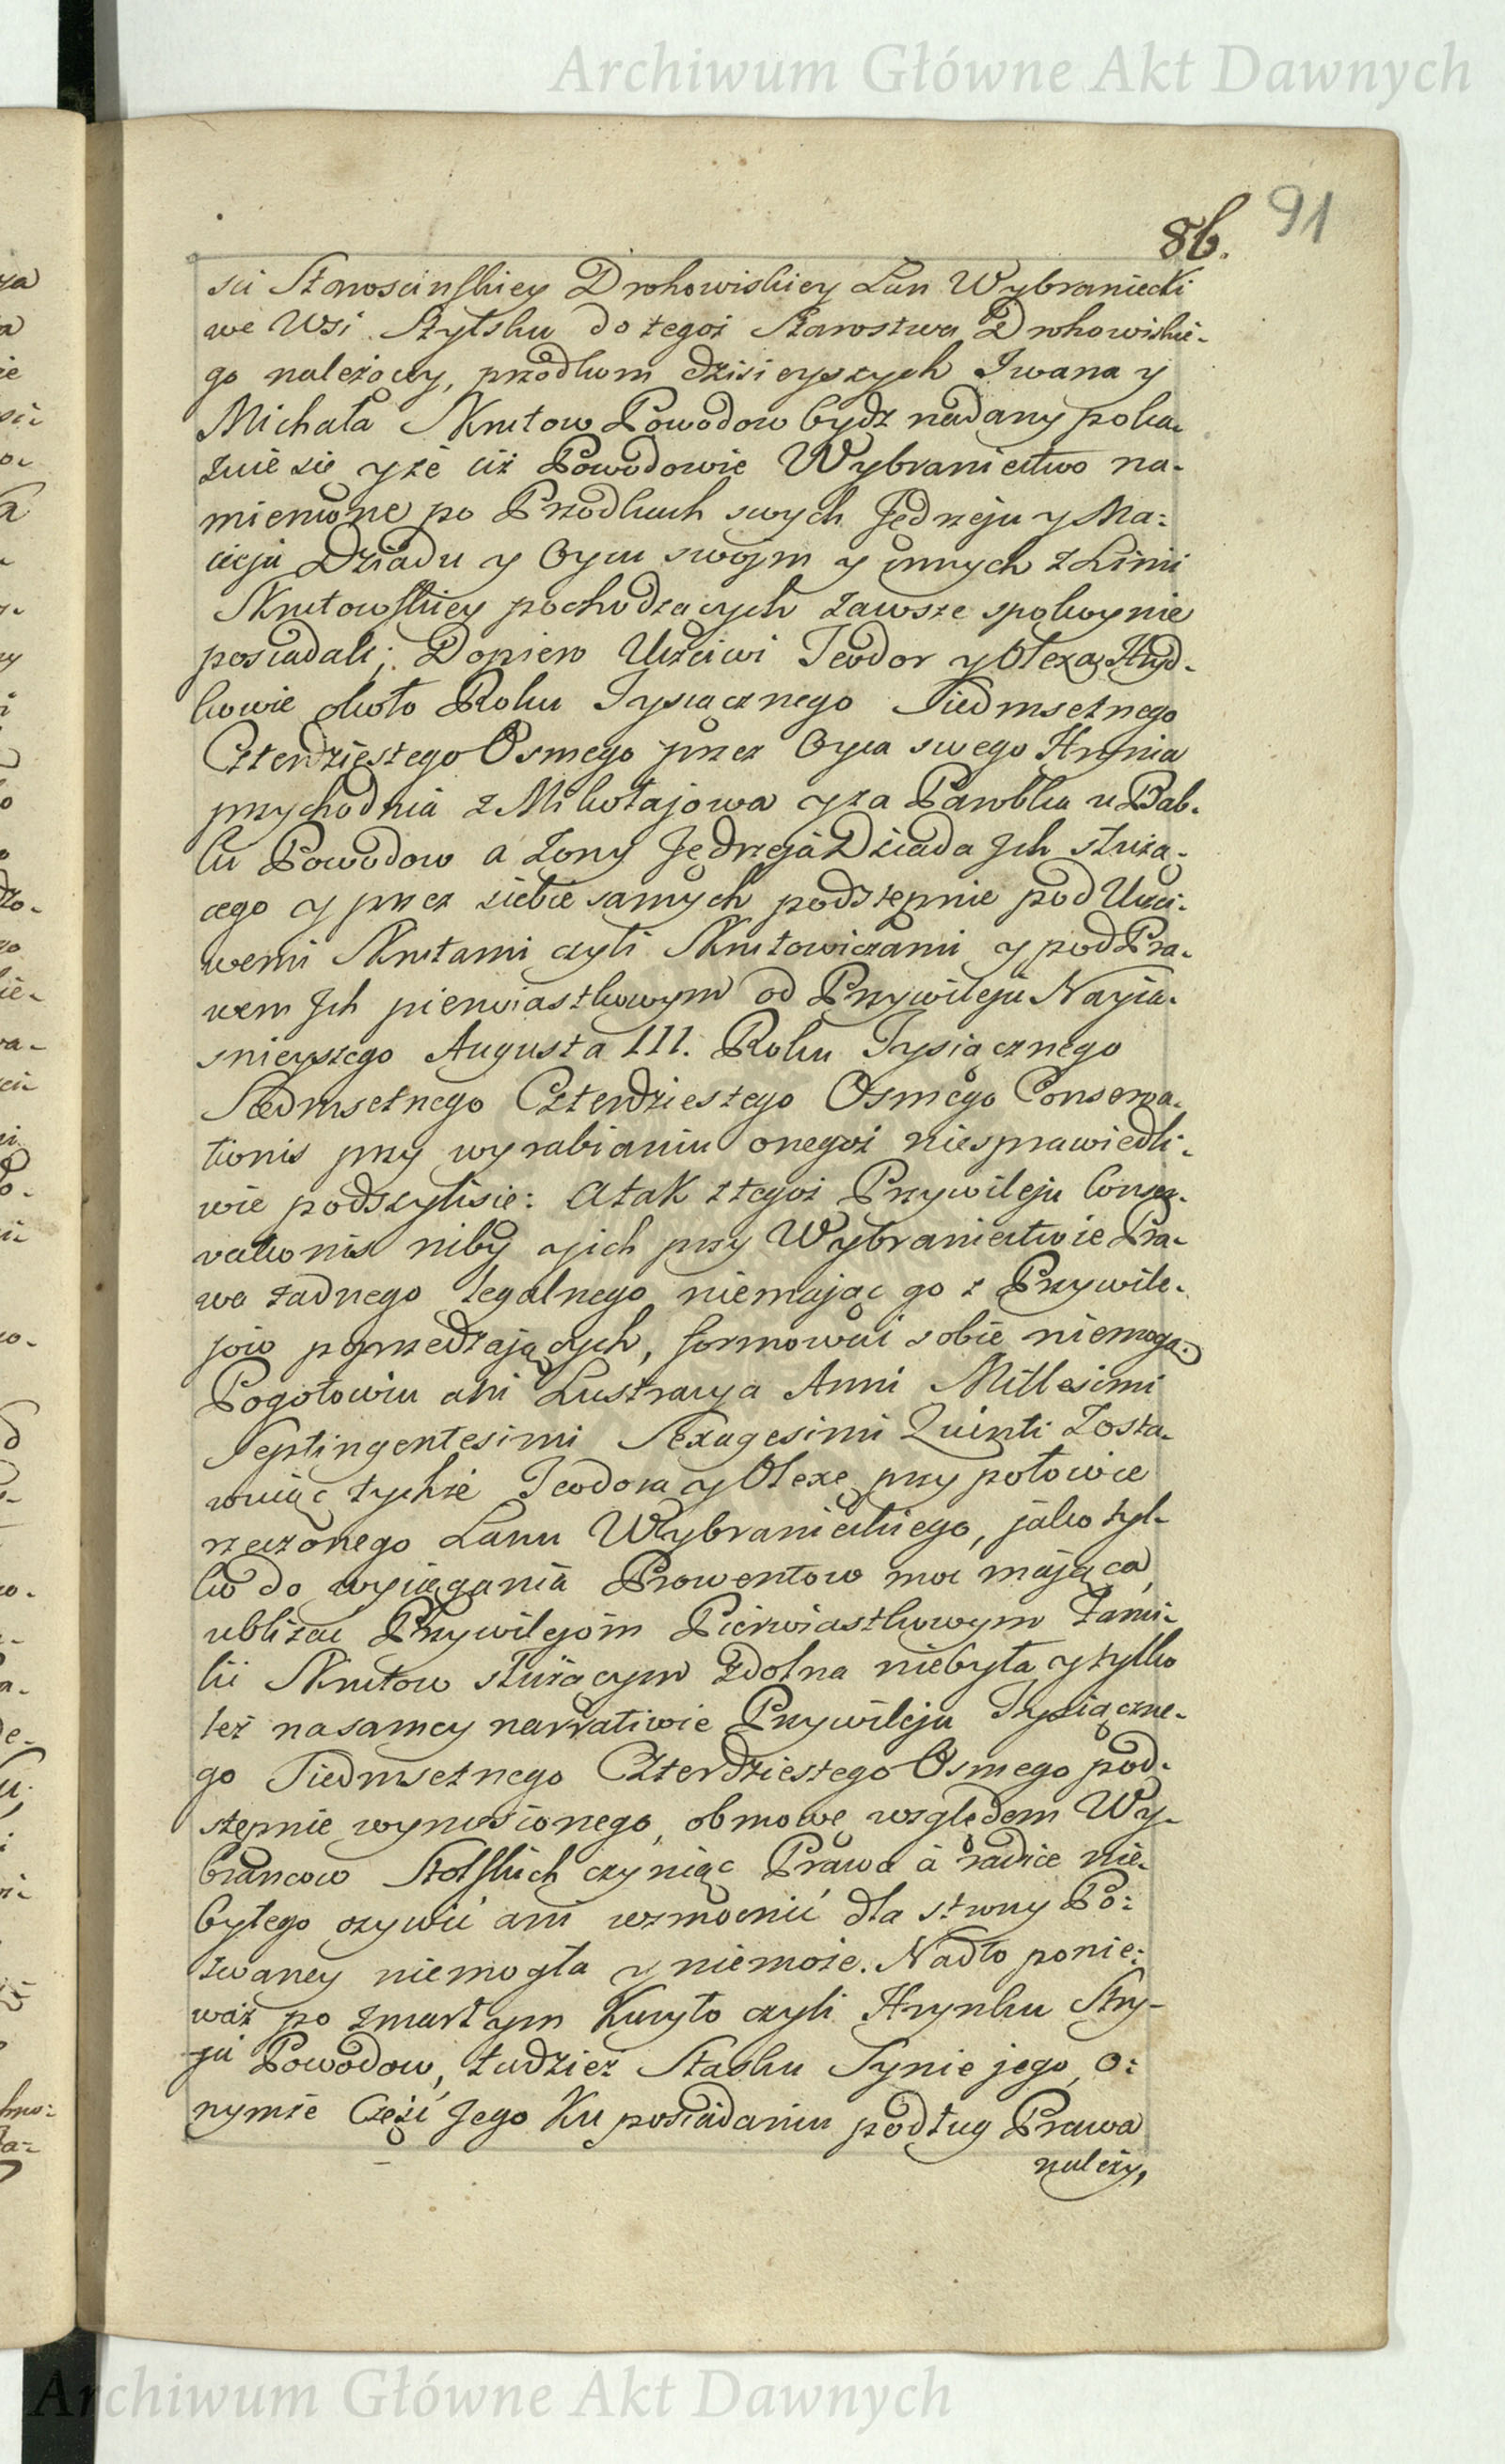 Archiwum Główne Akt Dawnych
91
86.
sci Staroscinskiey Drohowiskiey Łan Wybraniecki
we Wsi Stylsku do tegoż Starostwa Drohowiskie-
go należący, przodkom dzisieyszych Jwana y
Michała Skrutow Powodow bydz nadany poka-
zuie sie y że ciż Powodowie Wybraniectwo na-
mienione po Przodkach swych Jędrzeju y Ma-
cieju Dziadu y Oycu swojm y innych z Linii
Skrutowskiey pochodzacych zawsze spokoynie
posiadali; Dopiero Uczciwi Teodor y Olexa Hryd-
kowie około Roku Tysiącznego Siedmsetnego
Czterdziestego Osmego przez Oyca swego Hrynia
przychodnia z Mikołajowa y za Parobka u Bab-
ki Powodow a żony Jędrzeja Dziada Jch służą-
cego y przez siebie samych podstępnie pod Uczci-
wemi Skrutami czyli Skrutowiczami y pod Pra-
wem Jch pierwiastkowym od Przywileju Nayia-
snieyszego Augusta III. Roku Tysiącznego
Siedmsetnego Czterdziestego Osmego Conserva-
tionis przy wyrabianiu onegoż niesprawiedli-
wie podszylisie: Atak z tegoż Przywileju Conser-
vationis niby y ich przy Wybraniectwie Pra-
wa żadnego legalnego niemając go z Przywile-
jow poprzedzających, formować sobie niemogą.
Pogotowiu ani Lustracya Anni Millesimi
Septingentesimi Sexagesimi Quinti Zosta-
wuiąc tychże Teodora y Olexę przy połowice
rzeczonego Łanu Wybranieckiego, jako tyl-
ko do wyciągania Prowentow moc mająca,
ubliżac Przywilejom Pierwiastkowym Fami-
lii Skrutow służącym zdolna niebyła y tylko
też na samey narratiwie Przywileju Tysiączne-
go Siedmsetnego Czterdziestego Osmego pod-
stępnie wyniesionego, obmowę względem Wy-
brancow Stolskich czyniąc Prawa à radice nie-
byłego ożywić ani wzmocnić dla strony Po-
zwaney niemogła y niemoże. Nadto ponie-
waż po zmarłym Kuryło czyli Hrynku Stry-
ju Powodow, tudzież Stasku Synie jego, o-
nymże Częśc Jego Ku posiadaniu podług Prawa
należy,
Archiwum Główne Akt Dawnych